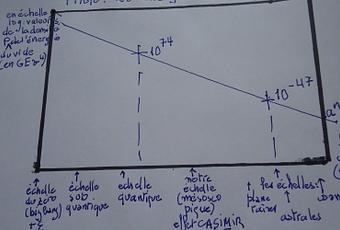 en échelle
log, valeurs
de la densité
d'énergie
du vide
(en GeV⁴)
10⁷⁴
10⁻⁴⁷
échelle
du zéro
(big bang)
échelle
sub
quantique
échelle
quantique
notre
échelle
(mésosco
pique)
effet CASIMIR
les échelles:
plané
taires
astrales